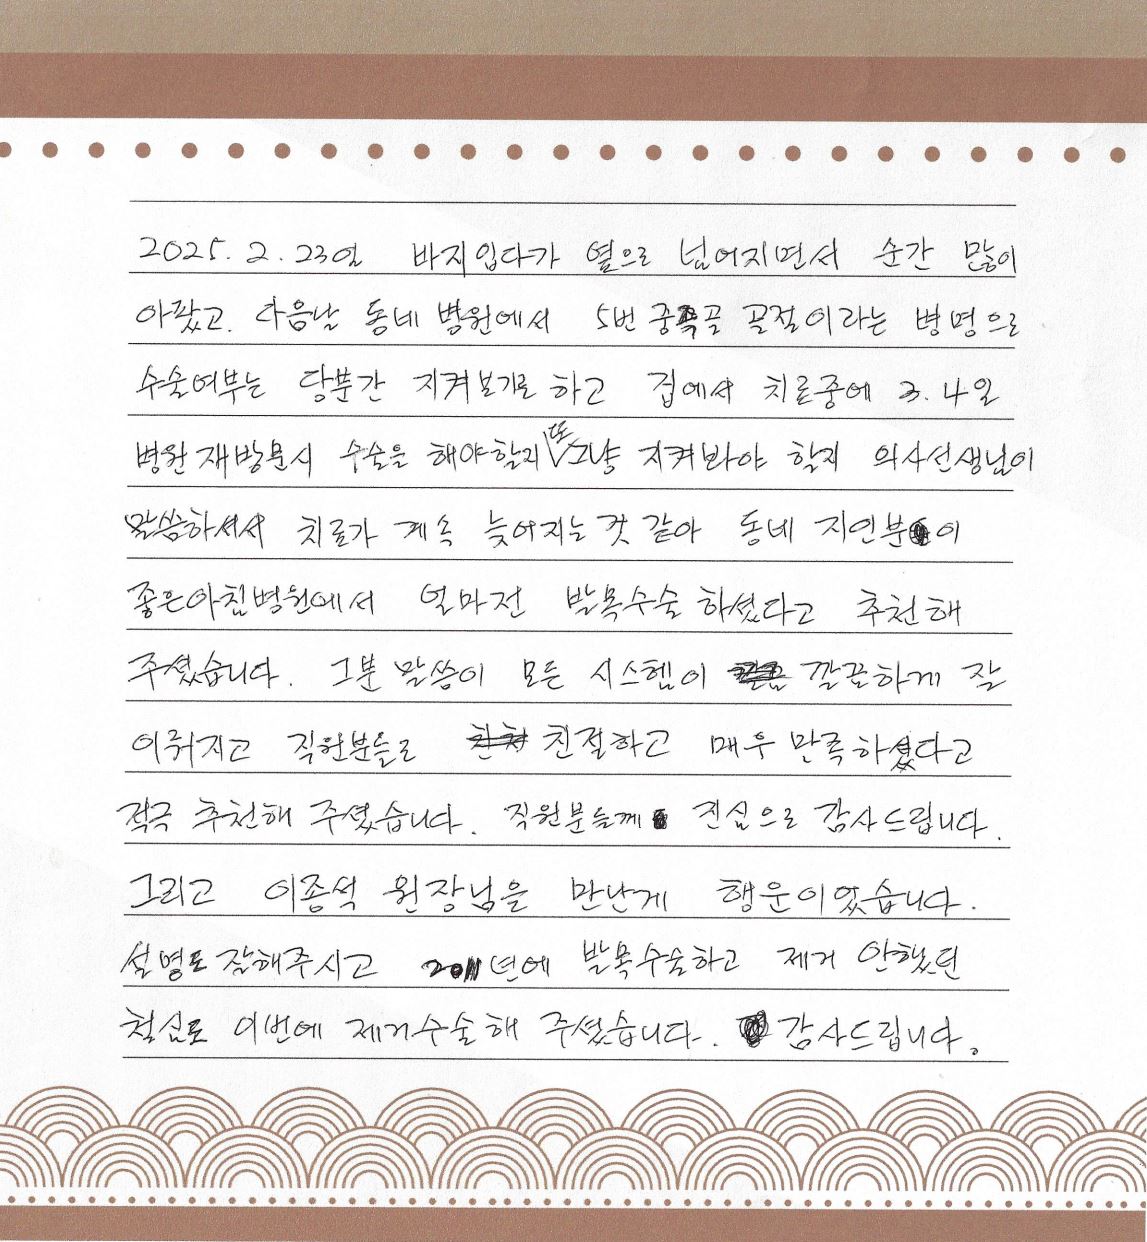 2025. 2. 23일 바지입다가 옆으로 넘어지면서 순간 많이
아팠고. 다음날 동네 병원에서 5번 중족골 골절이라는 병명으로
수술여부는 당분간 지켜보기로 하고 집에서 치료중에 3. 4일
병원 재방문시 수술을 해야할지 또 그냥 지켜봐야 할지 의사선생님이
말씀하셔서 치료가 계속 늦어지는것 같아 동네 지인분이
좋은아침병원에서 얼마전 발목수술 하셨다고 추천해
주셨습니다. 그분 말씀이 모든 시스템이 깔끔하게 잘
이뤄지고 직원분들도 친절하고 매우 만족하셨다고
적극 추천해 주셨습니다. 직원분들께 진심으로 감사드립니다.
그리고 이종석 원장님을 만난게 행운이었습니다.
설명도 잘해주시고 2011년에 발목수술하고 제거 안했던
철심도 이번에 제거수술해 주셨습니다. 감사드립니다.